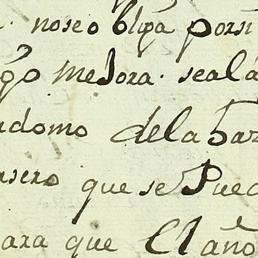 noseo bliga porsi
go mejora. seala
domo dela bar
asero que se Pued
ara que El año